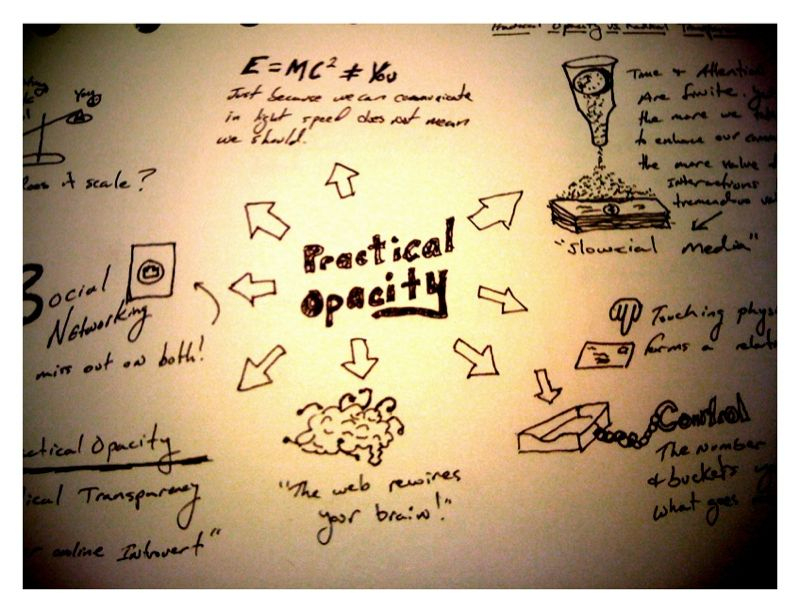 Practical Opacity vs Radical
E = MC² ≠ You
Just because we can communicate
in light speed does not mean
we should.
You
it scale?
Time & Attention
Are finite.
the more we
to enhance our
the more value
Interactions
tremendous
"Slowcial Media"
Practical
Opacity
Social
Networking
miss out on both!
Touching
forms a
Control
The number
& buckets
what goes
"The web rewires
your brain!"
Opacity
Transparency
online Introvert"